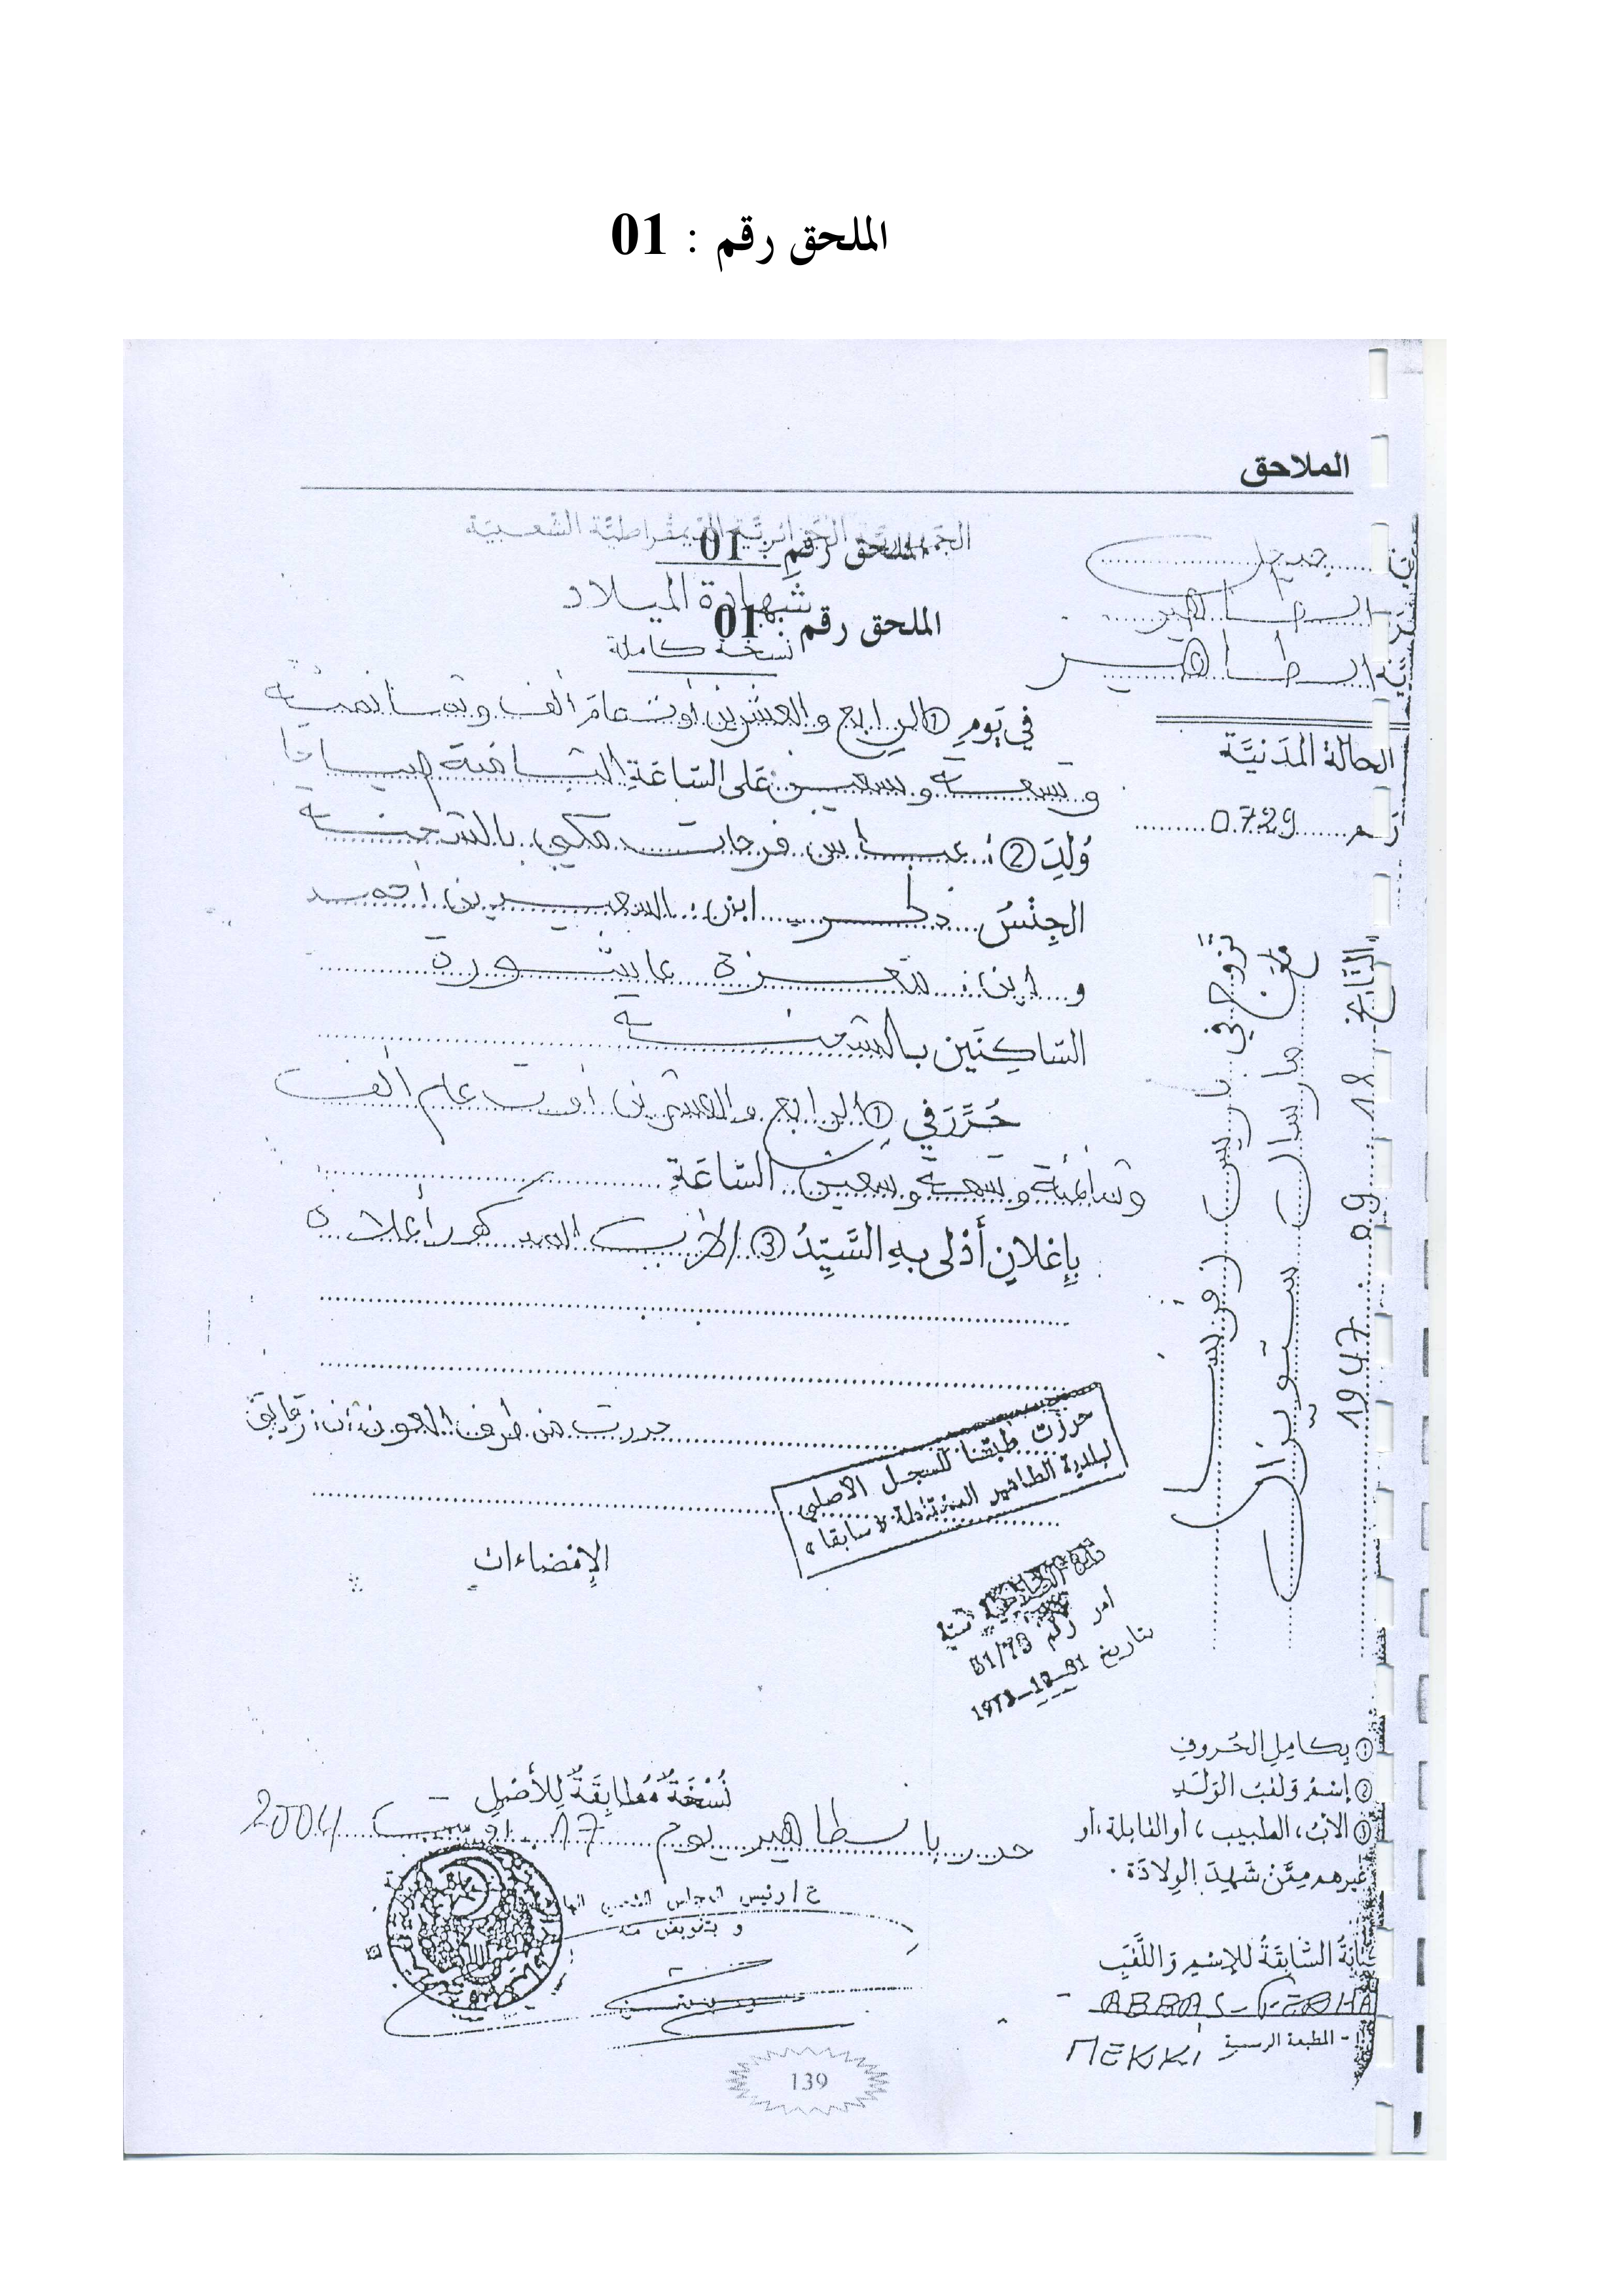 الملحق رقم : 01
الملاحق
الجمهورية الجزائرية الديمقراطية الشعبية
الملحق رقم : 01
شهادة الميلاد
الملحق رقم : 01
نسخة كاملة
جيجل
الطاهير
الطاهير
الحالة المدنية
رقم 0729
في يوم ① الرابع والعشرين أوت عام ألف وثمانمئة
وتسعة وتسعين على الساعة الثامنة صباحا
ولد ② : عباس فرحات مكي بالشحنة
الجنس ذكر ابن : السعيد بن أحمد
و ابن : معزة عاشورة
الساكنين بالشحنة
حرر في ① الرابع والعشرين أوت عام ألف
وثمانمئة وتسعة وتسعين الساعة
بإعلان أدلى به السيد ③ الأب المذكور أعلاه
حررت من طرف العون
حررت طبقا للسجل الأصلي
لبلدية الطاهير المختلطة « سابقا »
الإمضاءات
امر رقم
بتاريخ
تزوج في باريس فرنسا
مع مارسال ستويزال
التاريخ 18 . 09 . 1947
① بكامل الحروف
② إسم ولقب الولد
③ الأب، الطبيب، أو القابلة، أو
غيرهم ممن شهد الولادة .
نسخة مطابقة للأصل
حرر بالطاهير يوم 17 اوت 2004
ع / رئيس المجلس الشعبي
و بتفويض منه
السابقة للإسم واللقب
ABBAS - FERHA
MEKKI
- المطبعة الرسمية
139